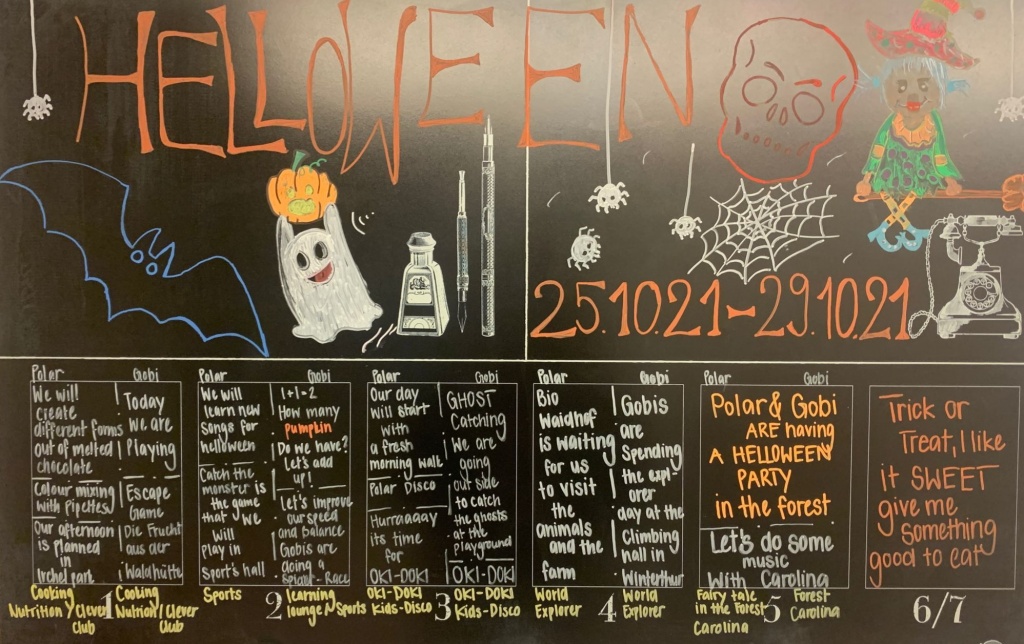 HELLOWEEN
25.10.21-29.10.21
Polar
Gobi
We will
create
different forms
out of melted
chocolate
Colour mixing
with Pipettes
Our afternoon
is planned
in
Irchel park
Today
we are
Playing
Escape
Game
Die Frucht
aus der
Waldhütte
Cooking
Nutrition/Clever
Club
1
Cooking
Nutrion/Clever
Club
Polar
Gobi
We will
learn new
songs for
helloween
Catch the
monster is
the game
that we
will
play in
Sport's hall
1+1=2
How many
pumpkin
Do we have?
Let's add
up!
Let's improve
our speed
and balance
Gobis are
doing a
Spider-Race
Sports
2
learning
lounge/Sports
Polar
Gobi
Our day
will start
with
a fresh
morning walk
Polar Disco
Hurraaaay
its time
for
OKI-DOKI
GHOST
Catching
We are
going
out side
to catch
the ghosts
at the
playground
OKI-DOKI
OKI-DOKI
Kids-Disco
3
OKI-DOKI
Kids-Disco
Polar
Gobi
Bio
Waidhof
is waiting
for us
to visit
the
animals
and the
farm
Gobis
are
Spending
the expl-
orer
day at the
Climbing
hall in
Winterthur
World
Explorer
4
World
Explorer
Polar
Gobi
Polar & Gobi
ARE having
A HELLOWEEN
PARTY
in the forest
Let's do some
music
With Carolina
Fairy tale
in the Forest
Carolina
5
Forest
Carolina
Trick or
Treat, I like
it SWEET
give me
something
good to eat
6/7